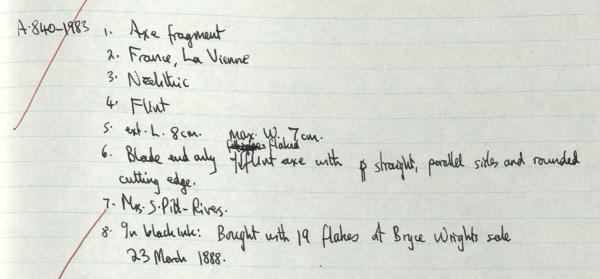 A.840-1983 1. Axe fragment
2. France, La Vienne
3. Neolithic
4. Flint
5. ext. L. 8cm. max. W. 7cm.
flaked
6. Blade end only of flint axe with straight, parallel sides and rounded
cutting edge.
7. Mrs. S. Pitt-Rivers.
8. In black ink: Bought with 19 flakes at Bryce Wrights sale
23 March 1888.